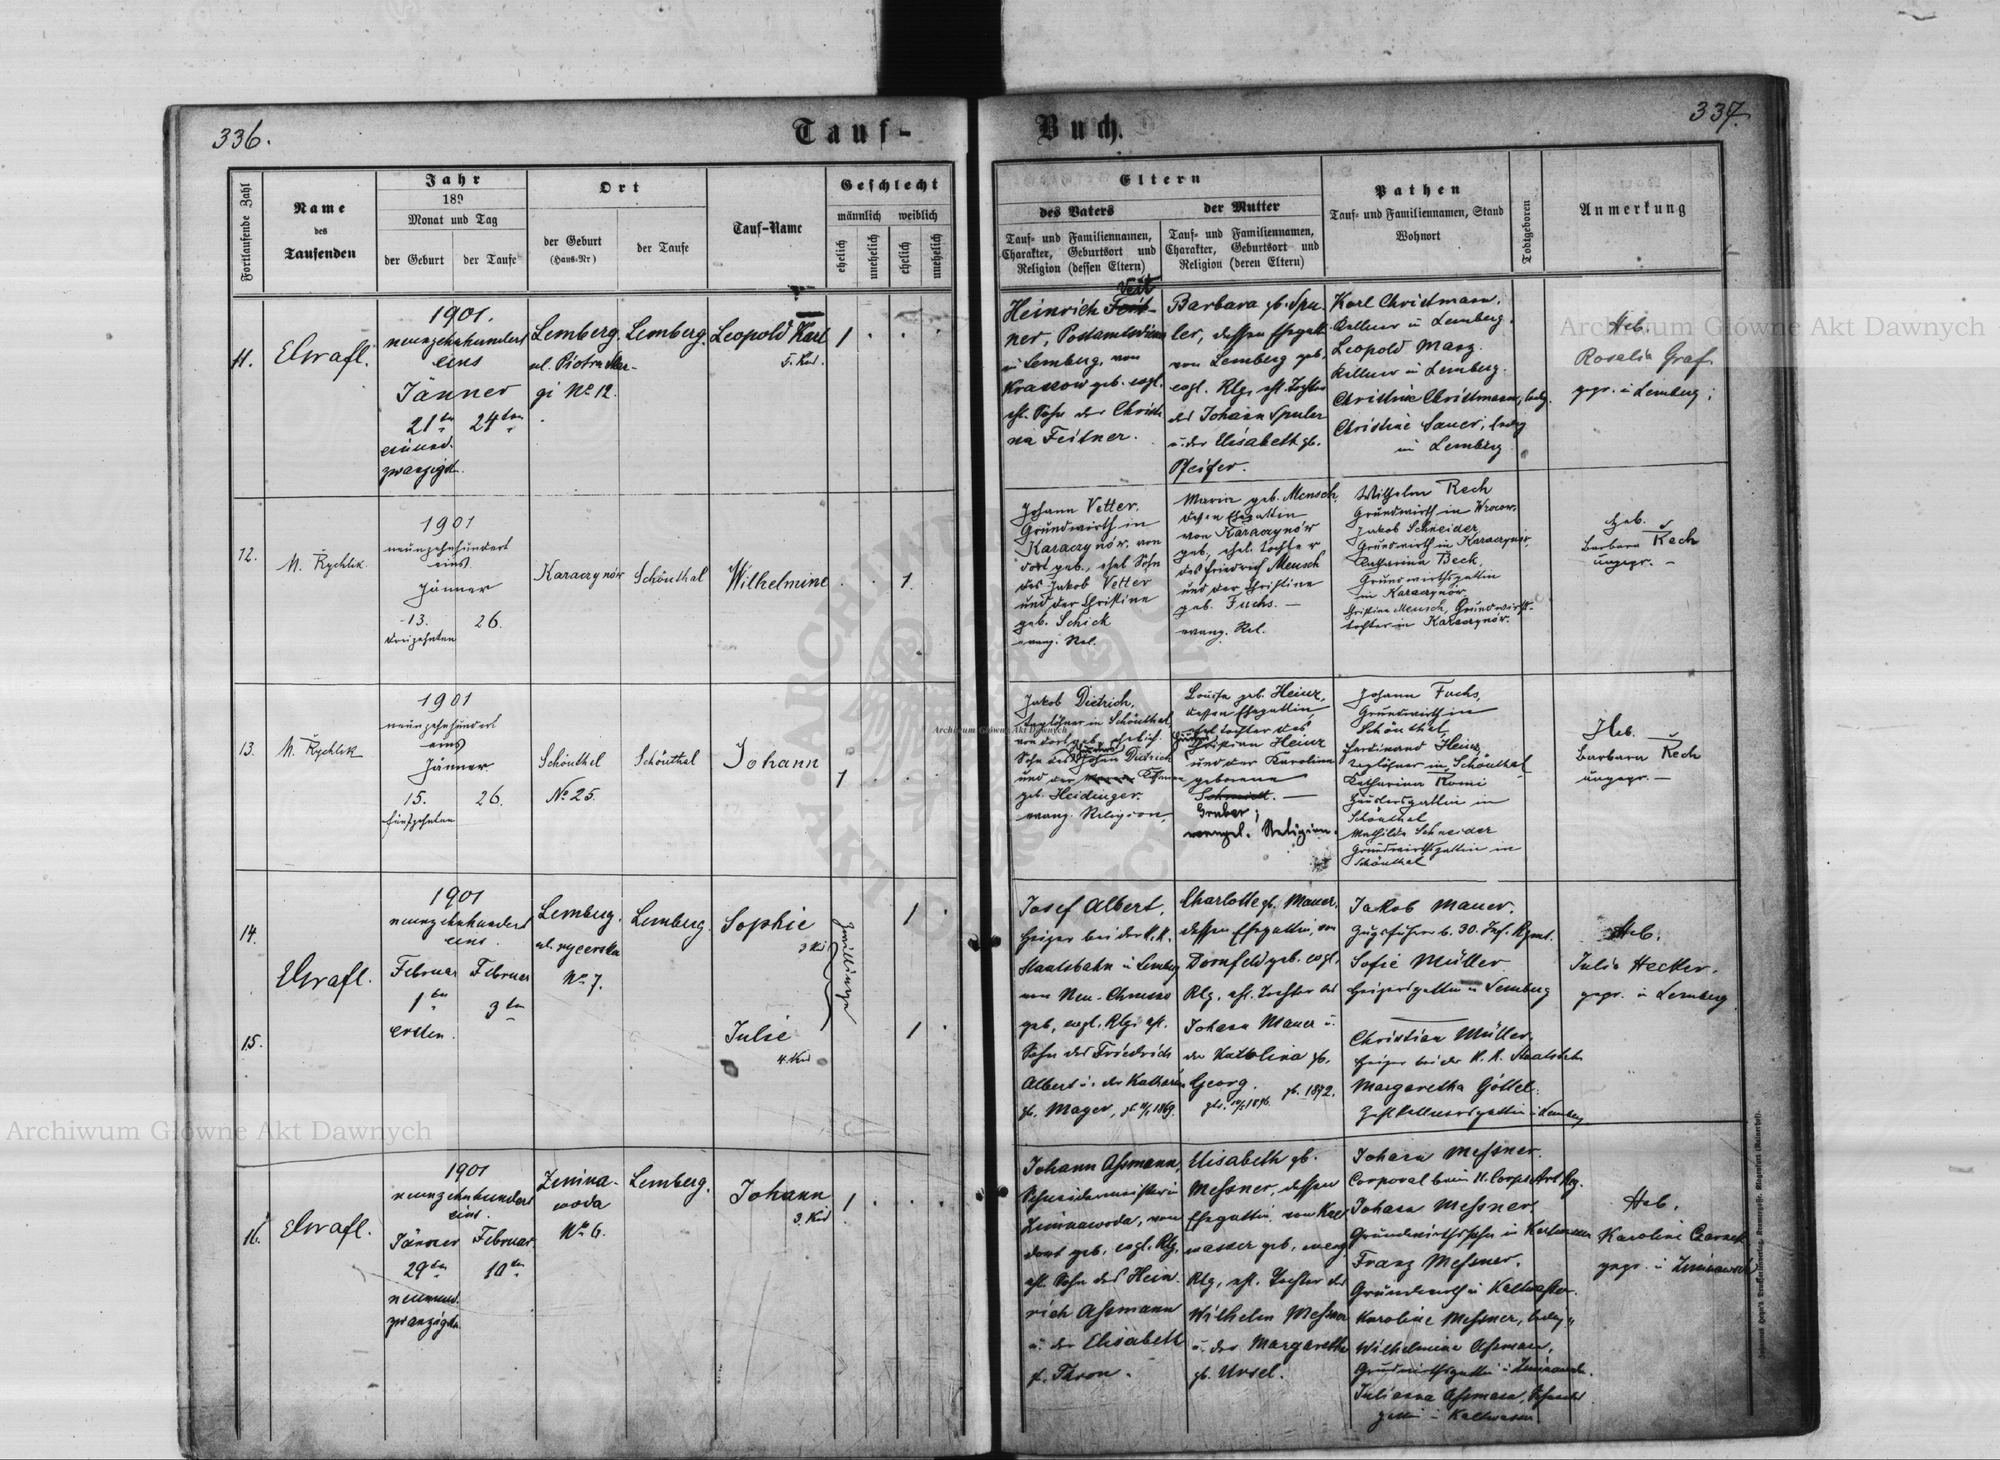 336.
Tauf-
Buch.
337.
Fortlaufende Zahl
Name
des
Taufenden
Jahr
189
Monat und Tag
der Geburt
der Taufe
Ort
der Geburt
(Haus-Nr)
der Taufe
Tauf-Name
Geschlecht
männlich
weiblich
ehelich
unehelich
ehelich
unehelich
Eltern
des Vaters
Tauf- und Familiennamen,
Charakter, Geburtsort und
Religion (dessen Eltern)
der Mutter
Tauf- und Familiennamen,
Charakter, Geburtsort und
Religion (deren Eltern)
Pathen
Tauf- und Familiennamen, Stand
Wohnort
Todtgeboren
Anmerkung
11.
1901.
neunzehnhundert
eins
Jänner
21ten 24ten
einund-
zwanzigsten
Lemberg.
gi No 12.
Lemberg.
Leopold Karl
5. Kind.
1
Heinrich Feit-
Veit
ner,
in Lemberg, von
Krassow geb. evgl.
ehl. Sohn der Christi-
na Feitner.
Barbara gb. Spu-
ler, dessen Ehegattin
von Lemberg geb.
evgl. Rlg. ehl. Tochter
des Johann Spuler
u. der Elisabeth gb.
Pfeifer.
Karl Christmann,
Kellner in Lemberg.
Leopold Marz
Kellner in Lemberg.
Christine Christmann, ledig.
Christine Sauer, ledig
in Lemberg
Heb.
Rosalia Graf
gepr. in Lemberg;
12.
M. Rychlik
1901
neunzehnhundert
eins
Jänner
13. 26.
dreizehnten
Karaczynów
Schönthal
Wilhelmine
1.
Johann Vetter,
Grundwirth in
Karaczynów, von
dort geb., ehel. Sohn
des Jakob Vetter
und der Christine
geb. Schick
evang. Rel.
Maria geb. Mensch,
dessen Ehegattin
von Karaczynów
geb., ehel. Tochter
des Friedrich Mensch
und der Christine
geb. Fuchs. —
evang. Rel.
Wilhelm Rech
Grundwirth in
Jakob Schneider,
Grundwirth in Karaczynów,
Katharina Beck,
Grundwirthsgattin
in Karaczynów
Christine Mensch, Grundwirths-
tochter in Karaczynów.
Heb.
Barbara Rech
ungepr. —
13.
M. Rychlik
1901
neunzehnhundert
eins
Jänner
15. 26.
fünfzehnten
Schönthal
No 25.
Schönthal
Johann
1
Jakob Dietrich,
Taglöhner in Schönthal
von dort geb., ehelich.
Sohn des Johann Dietrich
und der
geb. Heidinger.
evang. Religion,
Louise geb. Heinz,
dessen Ehegattin,
ehel. Tochter des
Christian Heinz
und der Karoline
geborene
Schmidt. —
Gruber;
evangel. Religion.
Johann Fuchs,
Grundwirth in
Schönthal,
Ferdinand Heinz,
Taglöhner in Schönthal
Katharina Romi
Häuslersgattin in
Schönthal
Mathilde Schneider
Grundwirthsgattin in
Schönthal
Heb.
Barbara Rech
ungepr. —
14.
15.
1901
neunzehnhundert
eins.
Februar Februar
1ten 3ten
ersten.
Lemberg.
ul. rycerska
No 7.
Lemberg.
Sophie
3 Kind
Julie
4. Kind
Zwillinge
1
1
Josef Albert,
Heizer bei der K. K.
Staatsbahn in Lemberg
von Neu-Chrusno
geb., evgl. Rlg. ehl.
Sohn des Friedrich
Albert u. der Katharina
gb. Mager,
Charlotte gb. Mauer,
dessen Ehegattin, von
Dornfeld geb. evgl.
Rlg. ehl. Tochter des
Johann Mauer u.
der Katolina gb.
Georg. gb. 1872.
Jakob Mauer,
Zugsführer b. 30. Inf. Rgmt.
Sofie Müller
Heizersgattin in Lemberg
Christian Müller,
Heizer bei der K. K. Staatsbahn
Margaretha Göttel.
Heb.
Julia Hecker.
gepr. in Lemberg
16.
1901
neunzehnhundert
eins.
Jänner Februar.
29ten 10ten
neunund-
zwanzigsten
Zimna-
woda
No 6.
Lemberg.
Johann
3. Kind
1
Johann Aßmann,
Schneidermeister in
Zimnawoda, von
dort geb., evgl. Rlg.
ehl. Sohn des Hein-
rich Aßmann
u. der Elisabeth
g. Thron.
Elisabeth gb.
Meßner, dessen
Ehegattin, von Kalt-
wasser geb., evang.
Rlg., ehl. Tochter des
Wilhelm Meßner
u. der Margaretha
gb. Ursel.
Johann Meßner.
Corporal beim 11. Corps Art. Rg.
Johann Meßner,
Grundwirthssohn in Kaltwasser
Franz Meßner,
Grundwirth in Kaltwasser.
Karoline Meßner, ledig
Wilhelmine Aßmann,
Grundwirthsgattin in Zimnawoda.
Julianna Aßmann,
gattin in Kaltwasser
Heb.
gepr. in Zimnawoda
Archiwum Główne Akt Dawnych
Archiwum Główne Akt Dawnych
Archiwum Główne Akt Dawnych